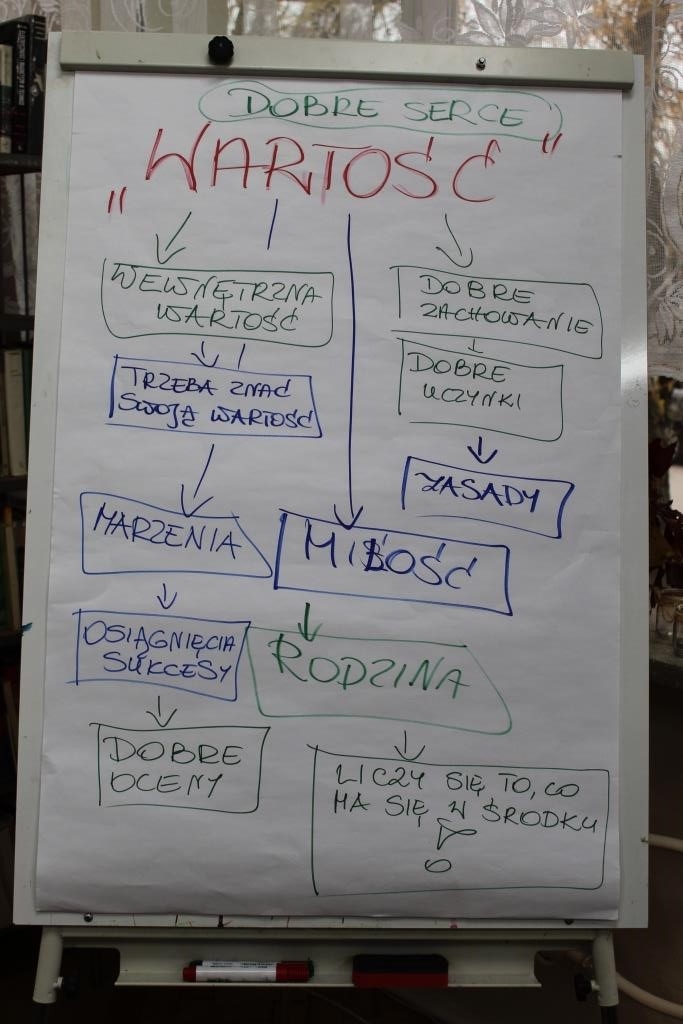 DOBRE SERCE
„WARTOŚĆ"
WEWNĘTRZNA
WARTOŚĆ
TRZEBA ZNAĆ
SWOJĄ WARTOŚĆ
MARZENIA
OSIĄGNIĘCIA
SUKCESY
DOBRE
OCENY
MIŁOŚĆ
RODZINA
LICZY SIĘ TO, CO
MA SIĘ W ŚRODKU
!
DOBRE
ZACHOWANIE
DOBRE
UCZYNKI
ZASADY